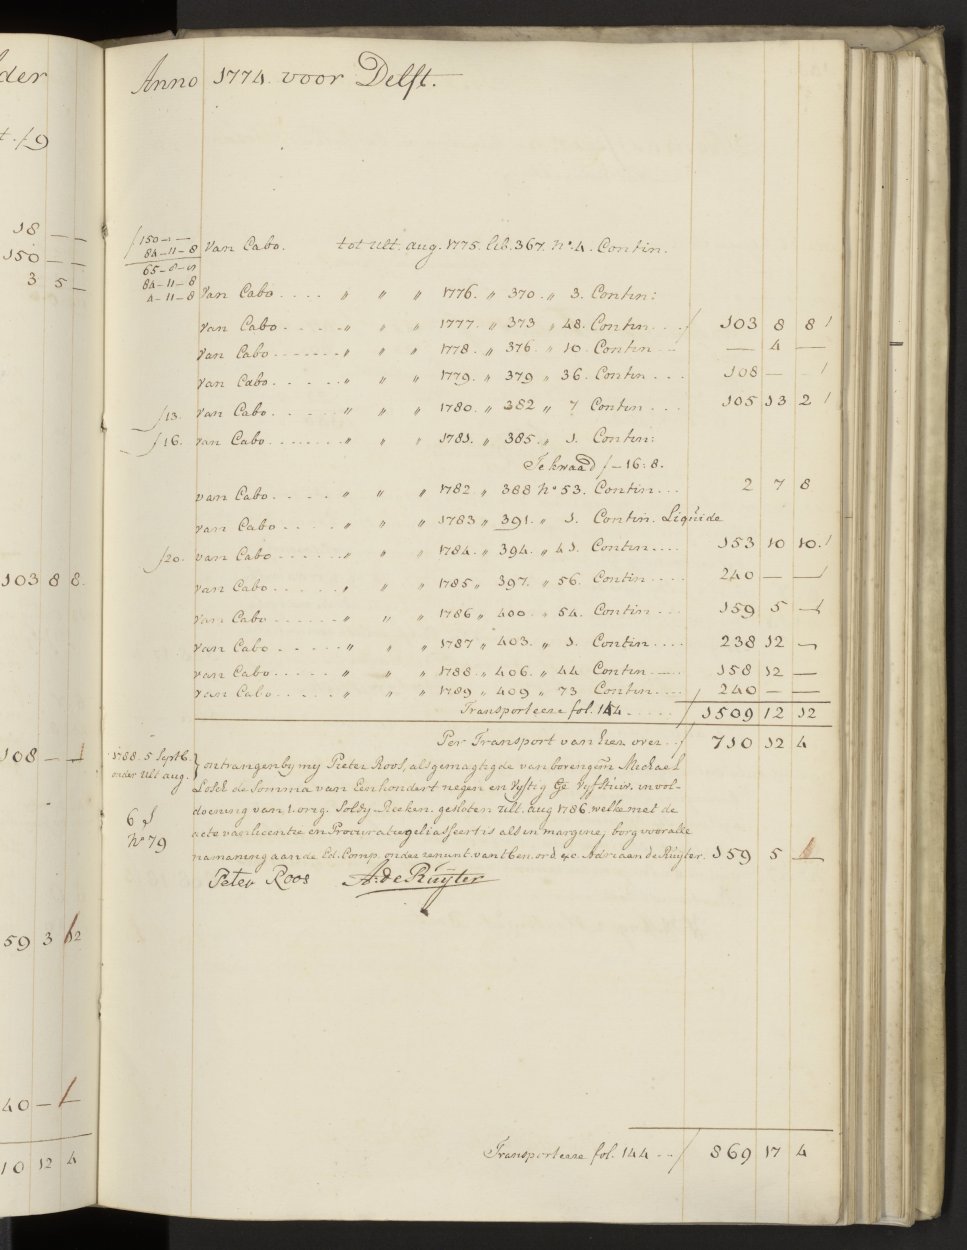 der
18 — —
150 — —
3 5 —
103 8 8.
108 — —
59 3 12
40 —
10 12 4
Anno 1774. voor Delft.
150 — —
84 - 11 - 8 van Cabo. tot ult. aug. 1775. lib. 367. No. 4. Contin.
65 - 8 - 8
84 - 11 - 8
4 - 11 - 8 van Cabo .... " " " 1776. " 370. " 3. Contin:
van Cabo ..... " " " 1777. " 373 " 48. Contin ... / 103 8 8
van Cabo ....... " " " 1778. " 376. " 10. Contin ... — 4 —
van Cabo ..... " " " 1779. " 379 " 36. Contin .... 108 —
/13. van Cabo ..... " " " 1780. " 382 " 7 Contin .... 105 13 2
/16. van Cabo ....... " " " 1781. " 385. " 1. Contin:
Te kwaad / — 16: 8.
van Cabo ..... " " " 1782. " 388 No 53. Contin ... 2 7 8
van Cabo ..... " " " 1783 " 391. " 1. Contin. Liquide
/20. van Cabo ...... " " " 1784. " 394. " 41. Contin .... 153 10 10.
van Cabo ...... " " " 1785 " 397. " 56. Contin .... 240 — —
van Cabo ...... " " " 1786 " 400. " 54. Contin .... 159 5 —
van Cabo ..... " " " 1787 " 403. " 1. Contin .... 238 12 —
van Cabo ..... " " " 1788. " 406. " 44 Contin .... 158 12 —
van Cabo ..... " " " 1789 " 409 " 73 Contin .... 240 — —
Transporteere fol. 144 ..... / 1509 12 12
Per Transport van hier over .. / 710 12 4
588. 5 Septb. ontfangen by my Pieter Roos, als gemagtigde van bovengem Michael
onder Ult aug. Losch de Somma van Eenhondert negen en Vyftig Ge Vyf Stuiv. in vol-
doening van 1. orig. Soldy Reeken. gesloten ult. aug 1786. welke met de
6 S acte van licentie en Procuratie geliasseert is als in margine, borg voor alle
No 79 namaning aan de Ed. Comp. onder renunt. van t ben. ord. &c. Adriaan de Ruyter. 159 5 —
Peter Roos A: de Ruijter
Transporteere fol. 144 ... / 869 17 4